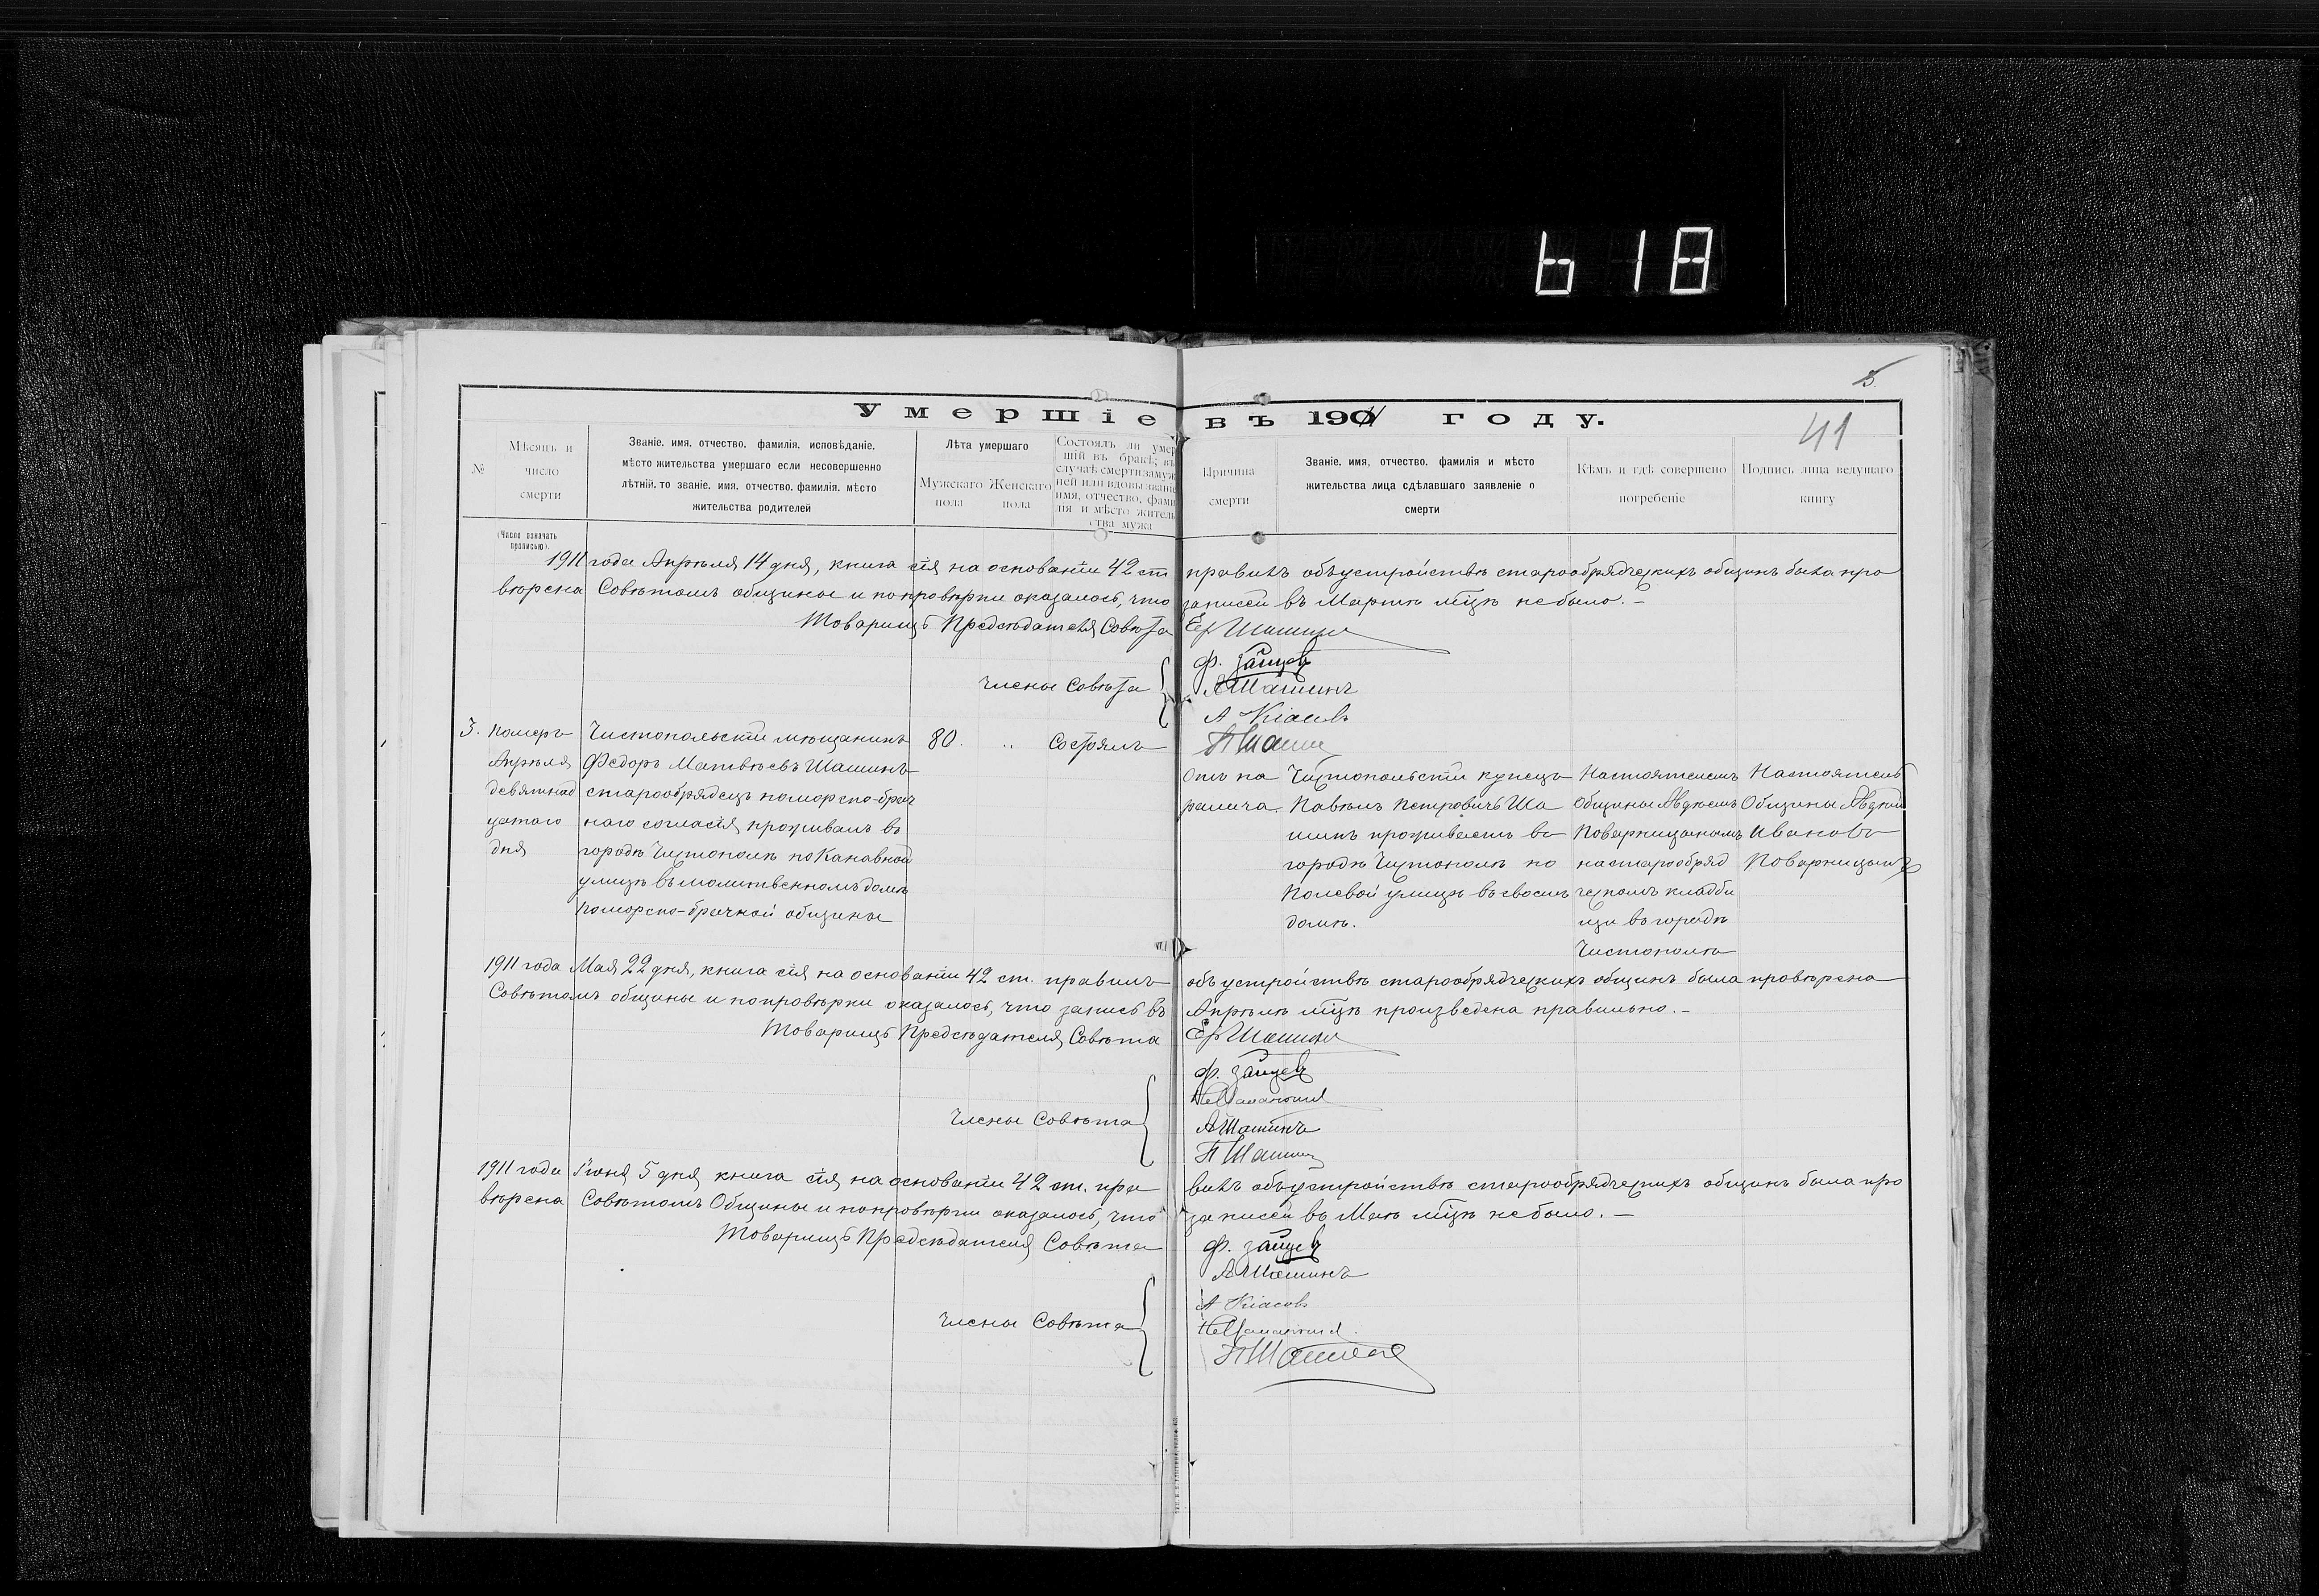 618
5.
Умершіе въ 1901 году.
41
№
Мѣсяцъ и
число
смерти
(Число означать
прописью).
Званіе. имя. отчество. фамилія. исповѣданіе.
мѣсто жительства умершаго если несовершенно
лѣтній. то званіе. имя. отчество. фамилія. мѣсто
жительства родителей
Лѣта умершаго
Мужскаго пола
Женскаго пола
Состоялъ ли умер
шій въ бракѣ; въ
случаѣ смерти замуж
ней или вдовы званіе
имя, отчество, фами
лія и мѣсто житель
ства мужа
Причина
смерти
Званіе. имя, отчество. фамилія и мѣсто
жительства лица сдѣлавшаго заявленіе о
смерти
Кѣмъ и гдѣ совершено
погребеніе
Подпись лица ведущаго
книгу
1911 года Апрѣля 14 дня, книга сія на основаніи 42 ст правилъ объ устройствѣ старообрядческихъ общинъ была про
вѣрена Совѣтомъ общины и по провѣрки оказалось, что записей въ Мартѣ м͠цѣ не было. –
Товарищъ Предсѣдателя Совѣта Ер Шашинъ
Члены Совѣта
Ф. Зайцевъ
А Шашинъ
А Кіасовъ
П Шашин
3.
Померъ
Апрѣля
девятнад
цатаго
дня
Чистопольскій мѣщанинъ
Федоръ Матвѣевъ Шашинъ
старообрядецъ поморско-брач
наго согласія, проживалъ въ
городѣ Чистополѣ по Канавной
улицѣ въ молитвенномъ домѣ
поморско-брачной общины
80.
„
Состоялъ
Отъ па
ралича.
Чистопольскій купецъ
Павелъ Петровичъ Ша
шинъ проживаетъ въ
городѣ Чистополѣ по
Полевой улицѣ въ своемъ
домѣ.
Настоятелемъ
Общины Авдѣемъ
Поварницынымъ
на старообряд
ческомъ кладби
щѣ въ городѣ
Чистополѣ
Настоятель
Общины Авдѣй
Ивановъ
Поварницынъ
1911 года Мая 22 дня, книга сія на основаніи 42 ст. правилъ объ устройствѣ старообрядческихъ общинъ была провѣрена
Совѣтомъ общины и по провѣрки оказалось, что запись въ Апрѣлѣ м͠цѣ произведена правильно. –
Товарищъ Предсѣдателя Совѣта Ер Шашинъ
Члены Совѣта
Ф. Зайцевъ
А Шашинъ
П Шашин
1911 года Іюня 5 дня книга сія на основаніи 42 ст. пра вилъ объ устройствѣ старообрядческихъ общинъ была про
вѣрена Совѣтомъ Общины и по провѣрки оказалось, что записей въ Маѣ м͠цѣ не было. –
Товарищъ Предсѣдателя Совѣта
Ф. Зайцевъ
Члены Совѣта
А Шашинъ
А Кіасовъ
П Шашин